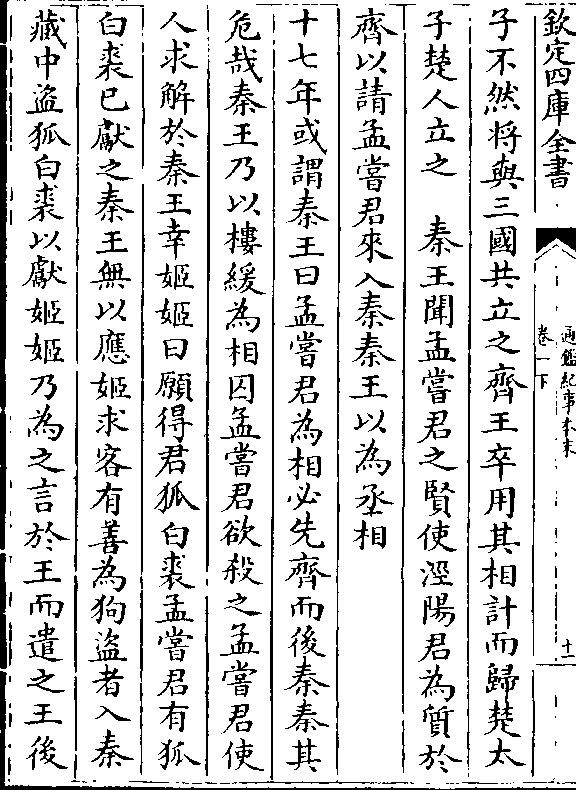 欽定四庫全書
通鑑紀事本末
卷一下
十二
子不然将與三國共立之齊王卒用其相計而歸楚太
子楚人立之　秦王聞孟嘗君之賢使涇陽君為質於
齊以請孟嘗君來入秦秦王以為丞相
十七年或謂秦王曰孟嘗君為相必先齊而後秦秦其
危哉秦王乃以樓緩為相囚孟嘗君欲殺之孟嘗君使
人求解於秦王幸姬姬曰願得君狐白裘孟嘗君有狐
白裘已獻之秦王無以應姬求客有善為狗盜者入秦
藏中盜狐白裘以獻姬姬乃為之言於王而遣之王後